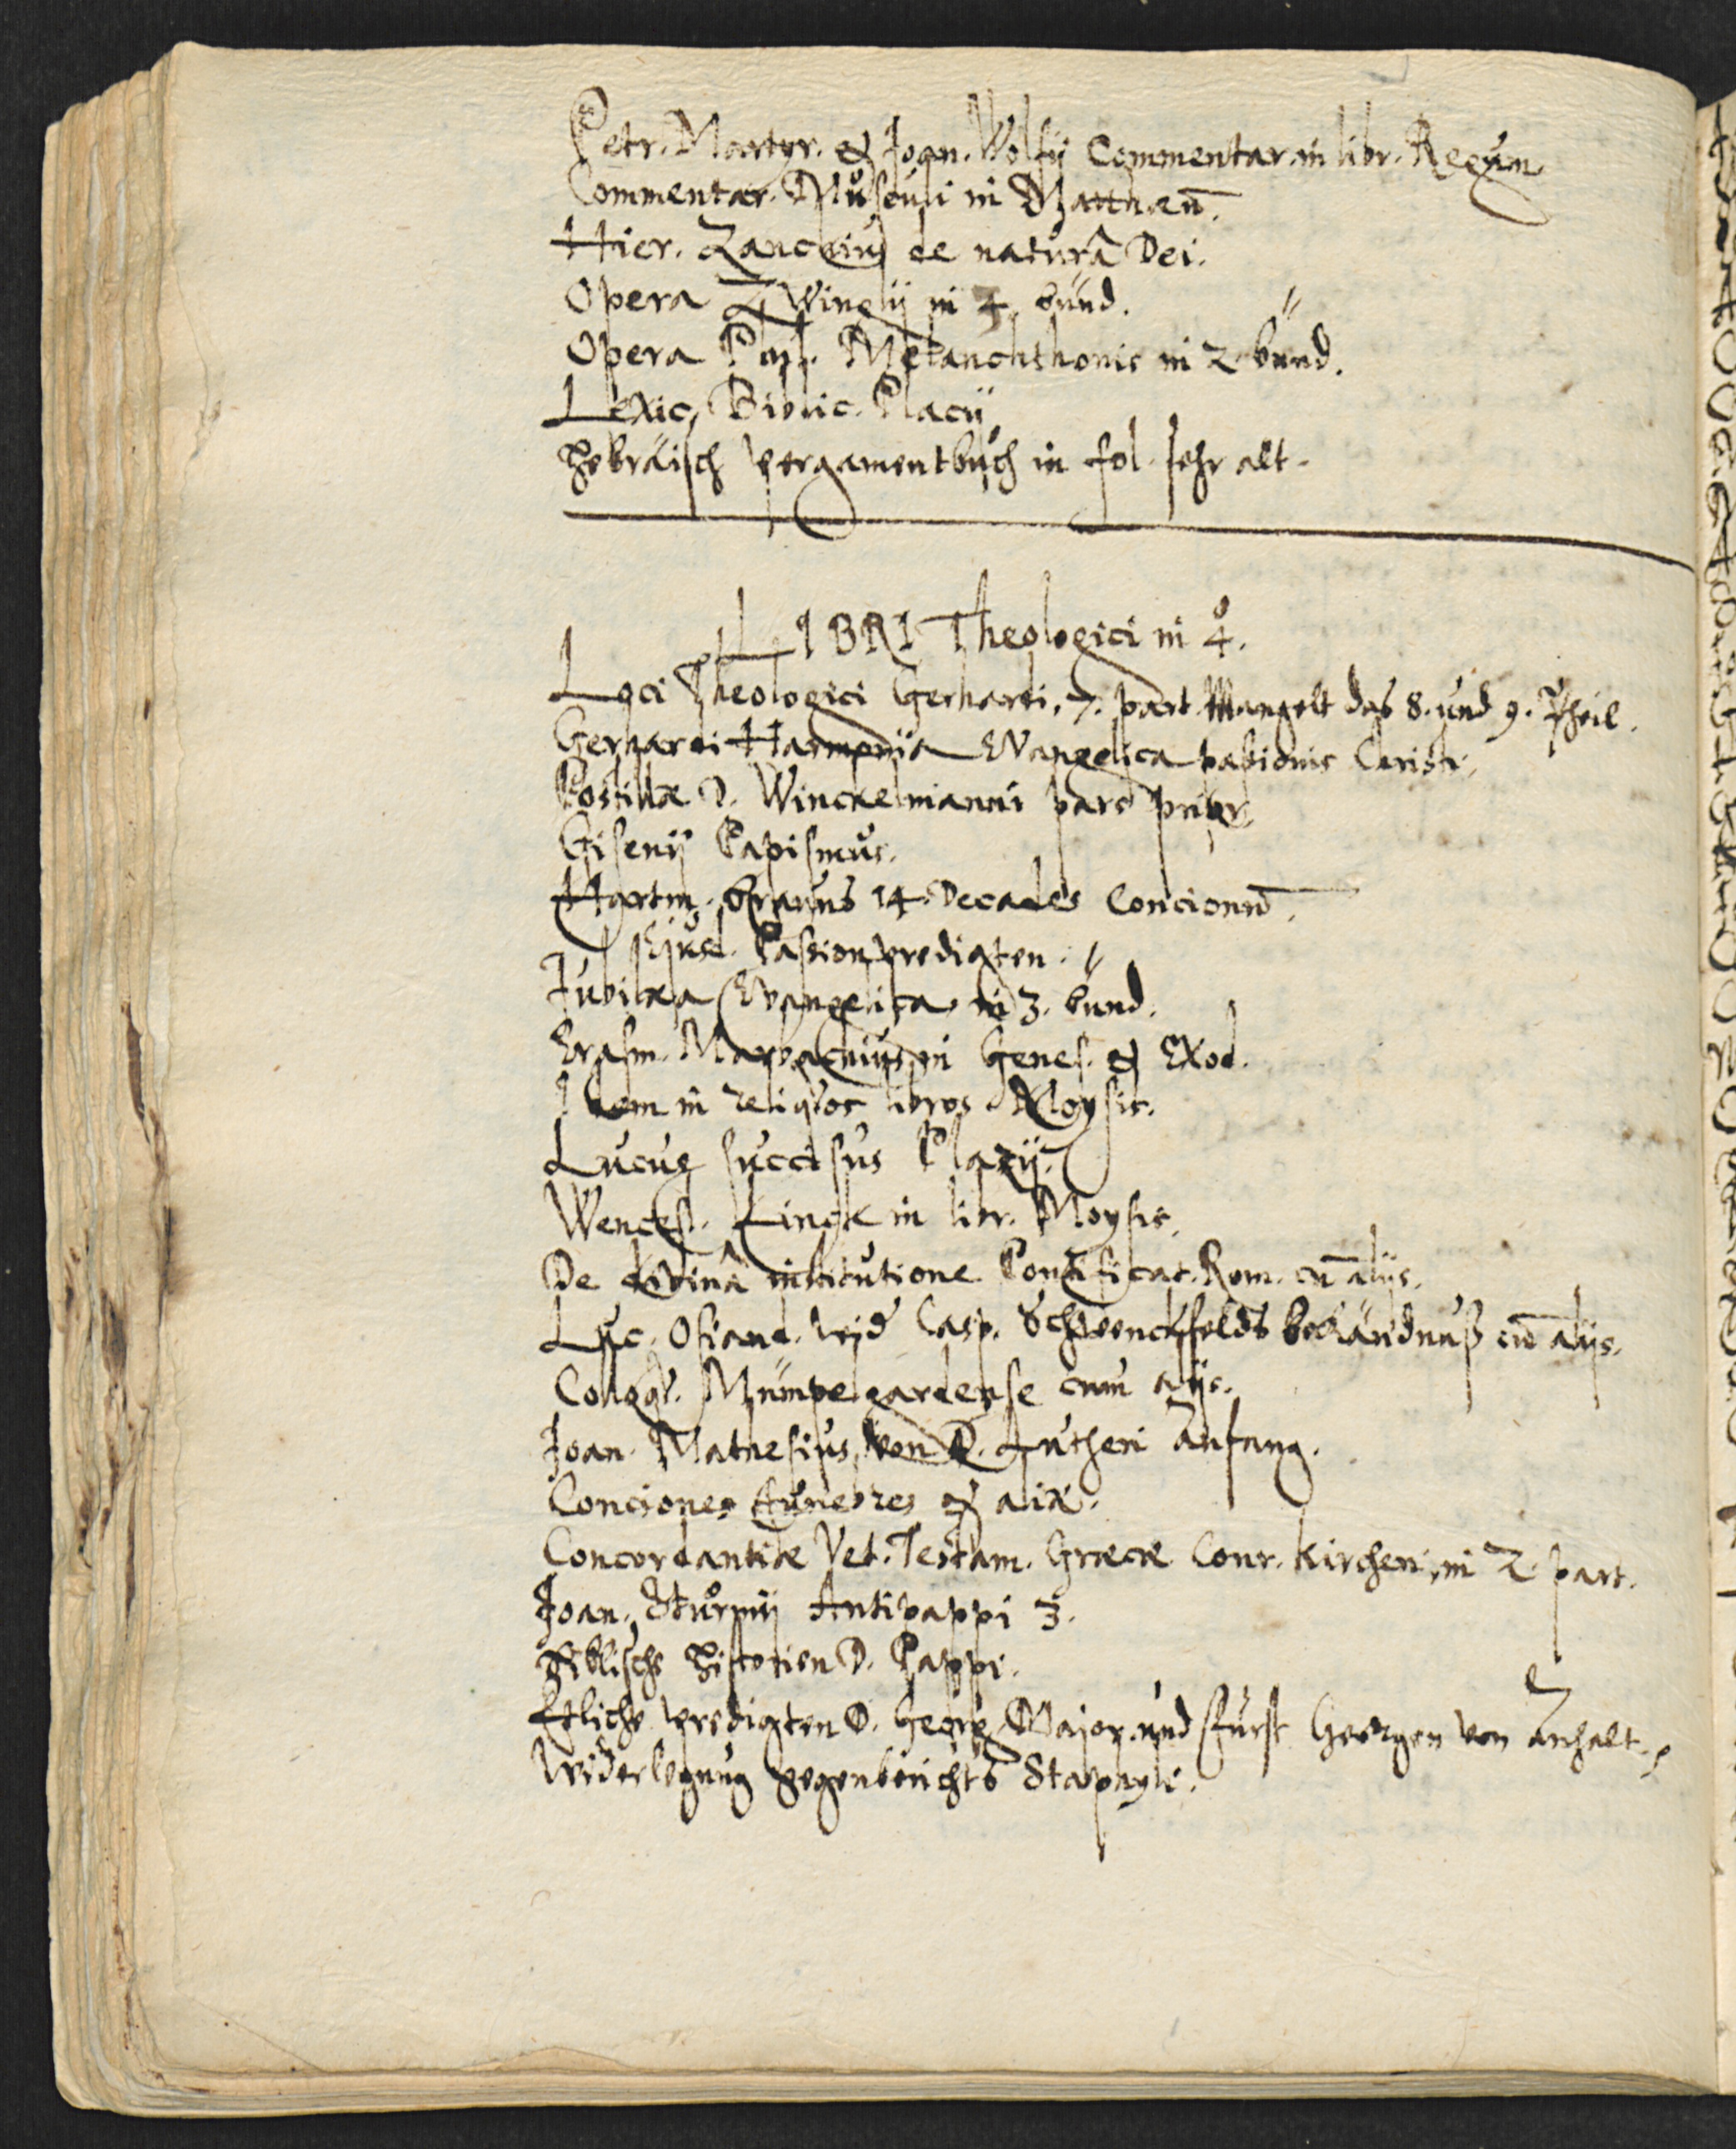 Petr. Martyr. & Joan. Wolfij Commentar. in libr. Regum.
Commentar. Musculi in Matthæū.
Hier. Zanchius de naturâ Dei.
Opera Zwinglij in 4. bünd.
Opera Phil. Melanchthonis in 2 bünd.
Lexic. Biblic. Placij
Hebräisch pergamentbuch in fol. sehr alt.
LIBRI Theologici in 4°.
Loci Theologici Gerhardi, 7. part. Mangelt das 8. und 9. Theil.
Gerhardi Harmonia Evangelica passionis Christi.
Postillæ D. Winckelmanni pars prior.
Gisenij Papismus.
Hartm. Brauns 14 Decades Concionū.
Ejusd. Passionpredigten.
Jubilæa Evangelica in 3. bünd.
Erasm. Marbachius in Genes. & Exod.
Idem in reliquos libros Moysis.
Lucus succisus Plazij.
Wencesl. Linck in libr. Moysis.
De divinâ institutione Pontificat. Rom. cū alijs.
Luc. Osiand. wid Casp. Schwenckfelds bekändnuß cū alijs.
Colloq. Mümpelgardense cum alijs.
Joan. Mathesius, von D. Lutheri Anfang.
Conciones funebres & aliæ.
Concordantiæ Vet. Testam. Græcæ Conr. Kircheri, in 2. part.
Joan. Sturmij Antipappi 3.
Biblische Historien D. Pappi.
Etliche predigten D. Georg Major. und Fürst Georgen von Anhalt.
Widerlegung gegenberichts Stapuyli.